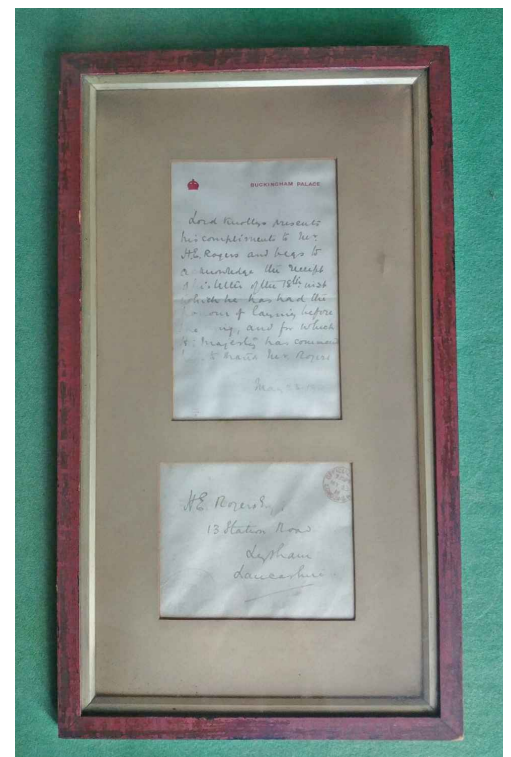 BUCKINGHAM PALACE
Lord Knollys presents
his compliments to Mr.
H.E. Rogers and begs to
a nowledge the receipt
letter of the 18th inst
which he has had the
our of laying before
ng, and for which
Majesty has comman
to thank Mr. Rogers
May 22
H.E. Rogers Esq.
13 Station Road
Lytham
Lancashire